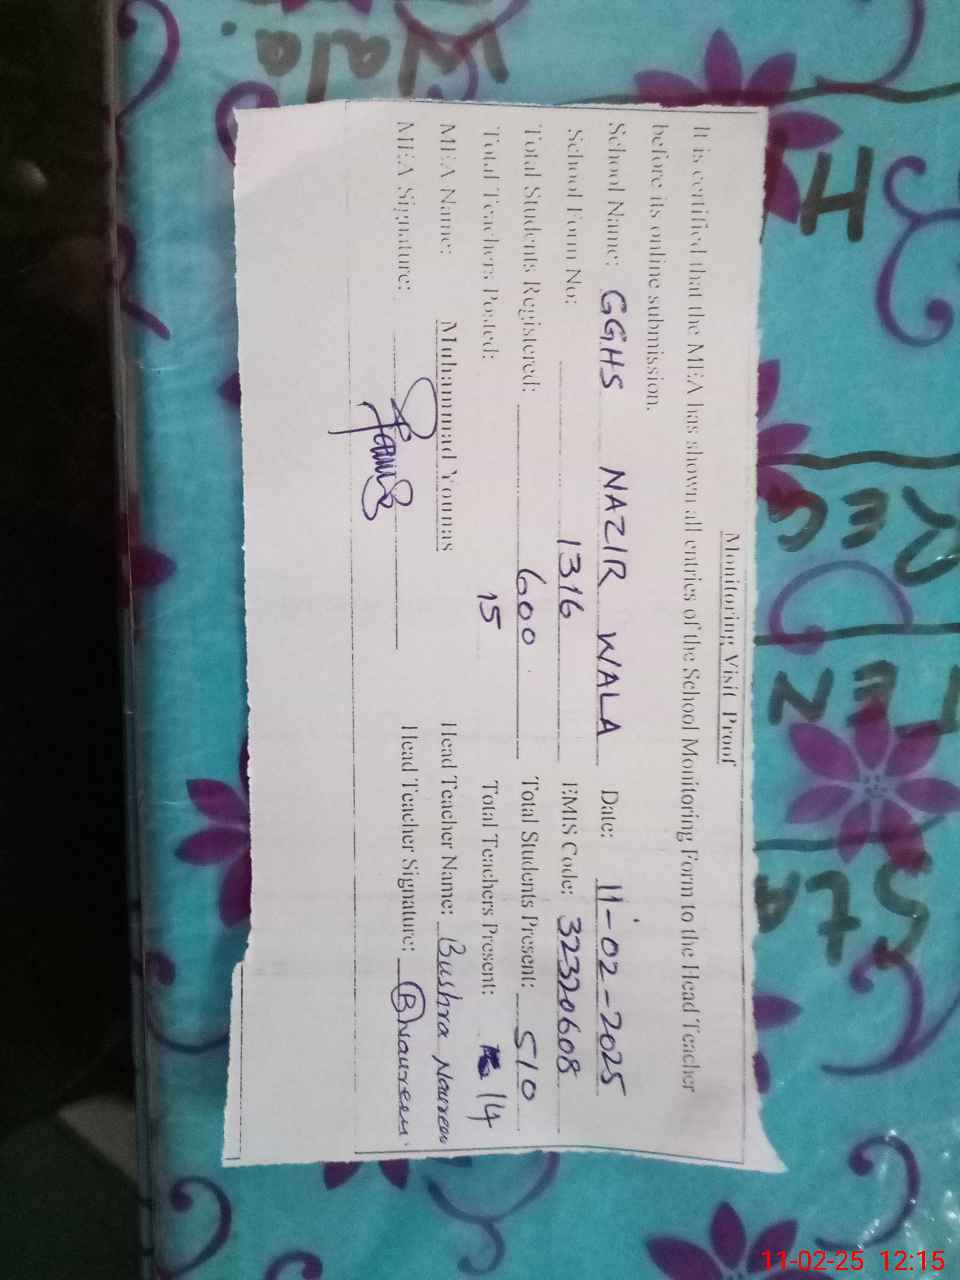 Monitoring Visit Proof
It is certified that the MEA has shown all entries of the School Monitoring Form to the Head Teacher
before its online submission.
School Name: GGHS NAZIR WALA Date: 11-02-2025
School Form No: 1316 EMIS Code: 32320608
Total Students Registered: 600 Total Students Present: 510
Total Teachers Posted: 15 Total Teachers Present: 14
MEA Name: Muhammad Younas Head Teacher Name: Bushra Naureen
MEA Signature: Head Teacher Signature: BNaureen
Wala.
H
REC
TEN
StA
11-02-25 12:15